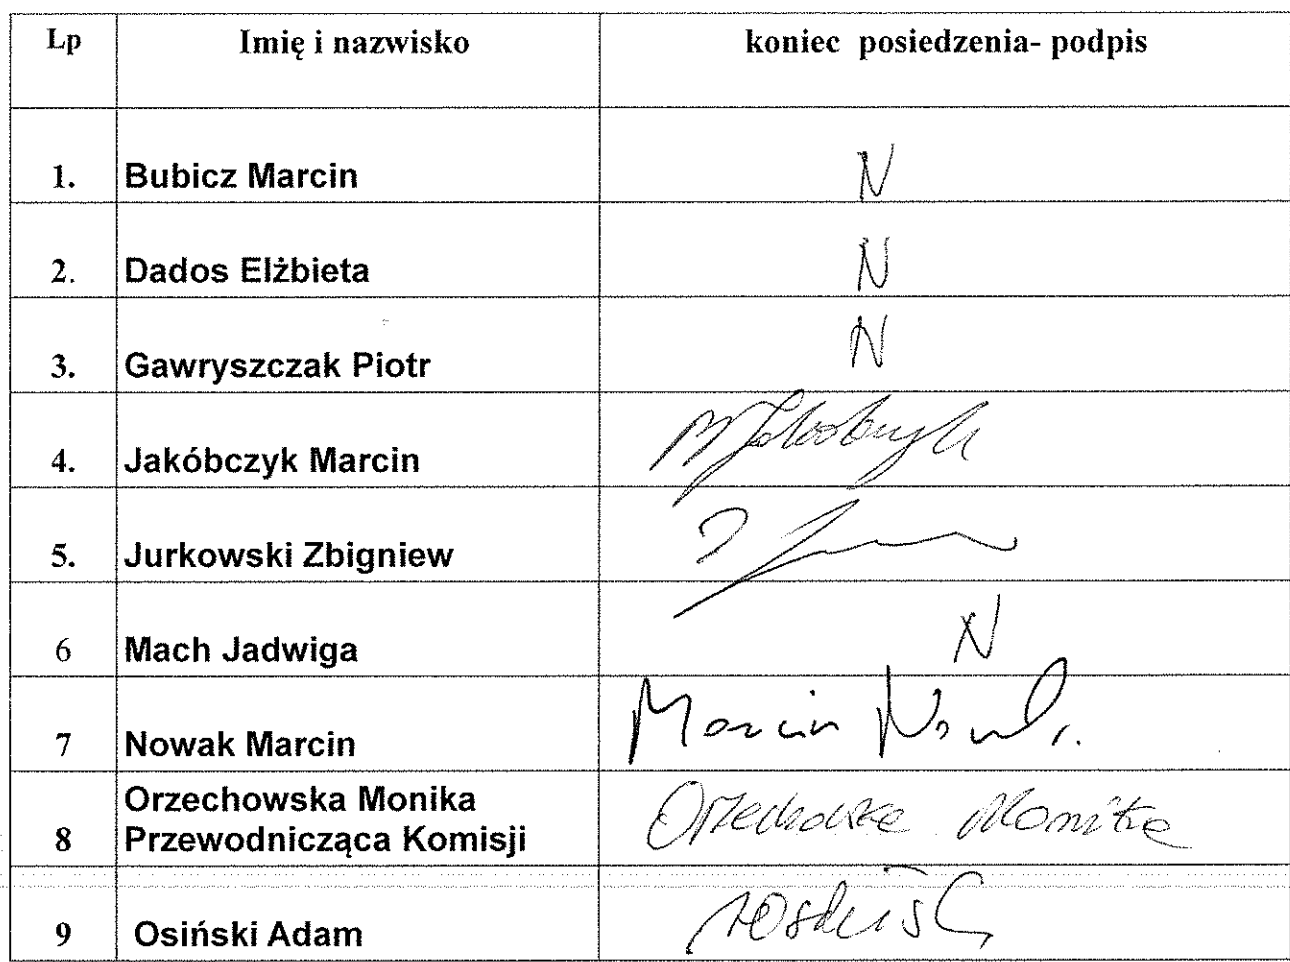 Lp Imię i nazwisko koniec posiedzenia- podpis
1. Bubicz Marcin N
2. Dados Elżbieta N
3. Gawryszczak Piotr N
4. Jakóbczyk Marcin M Jakóbczyk
5. Jurkowski Zbigniew
6 Mach Jadwiga N
7 Nowak Marcin Marcin Nowak
Orzechowska Monika
8 Przewodnicząca Komisji Orzechowska Monika
9 Osiński Adam